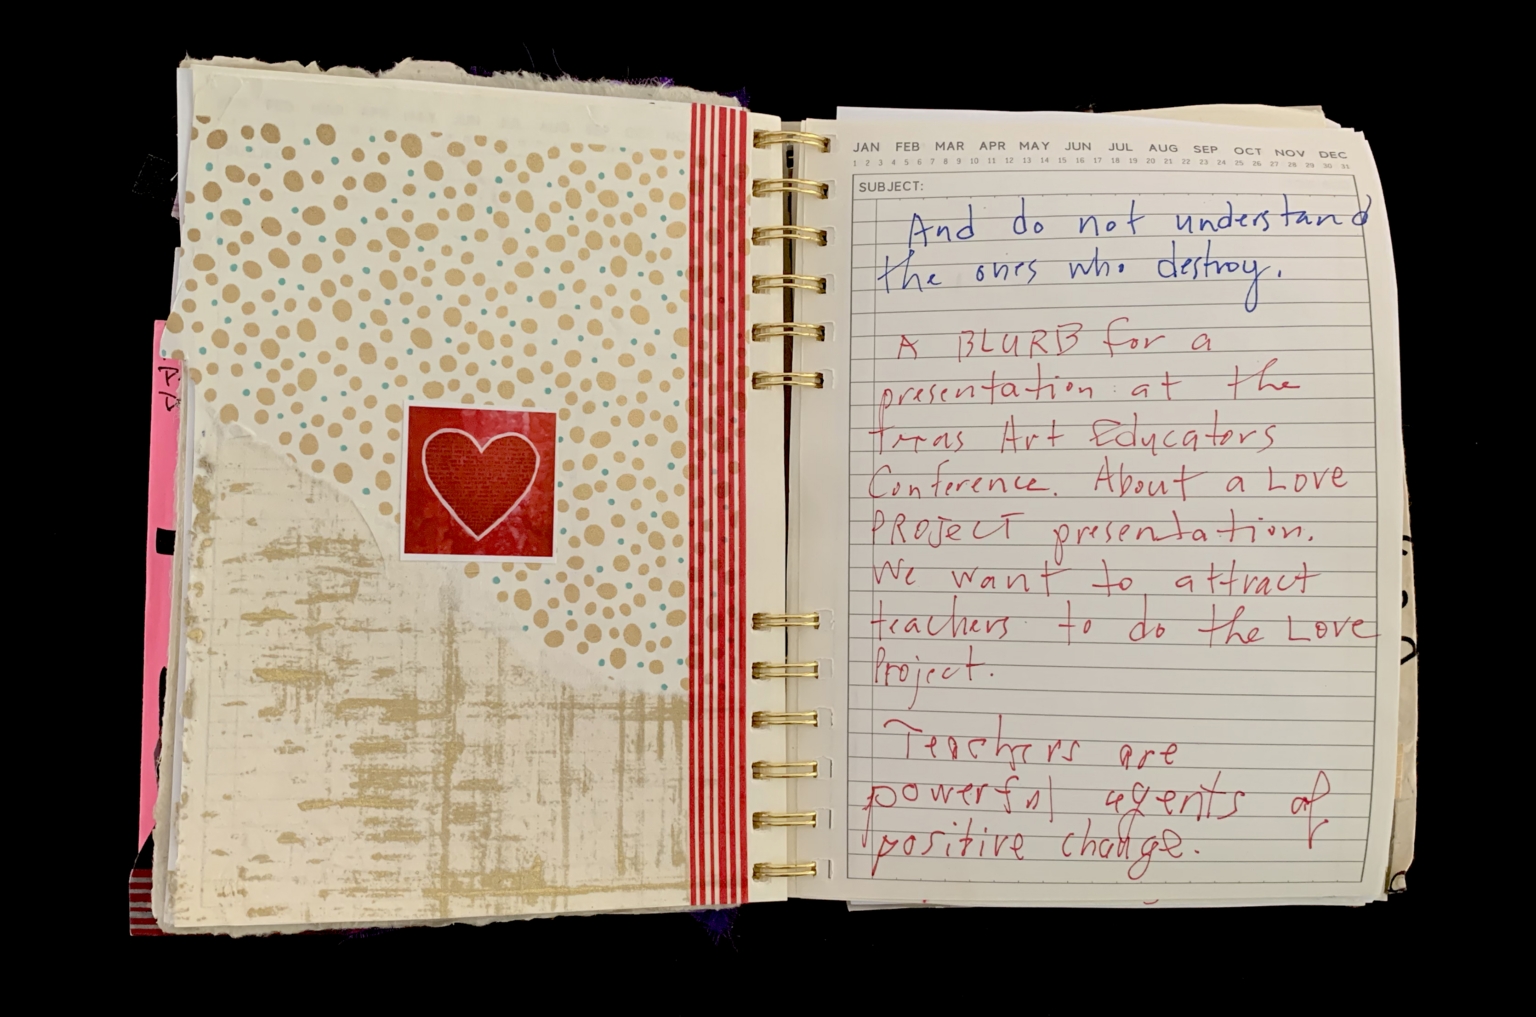 JAN FEB MAR APR MAY JUN JUL AUG SEP OCT NOV DEC
1 2 3 4 5 6 7 8 9 10 11 12 13 14 15 16 17 18 19 20 21 22 23 24 25 26 27 28 29 30 31
SUBJECT:
And do not understand
the ones who destroy.
A BLURB for a
presentation at the
Texas Art Educators
Conference. About a LOVE
PROJECT presentation.
We want to attract
teachers to do the LOVE
Project.
Teachers are
powerful agents of
positive change.